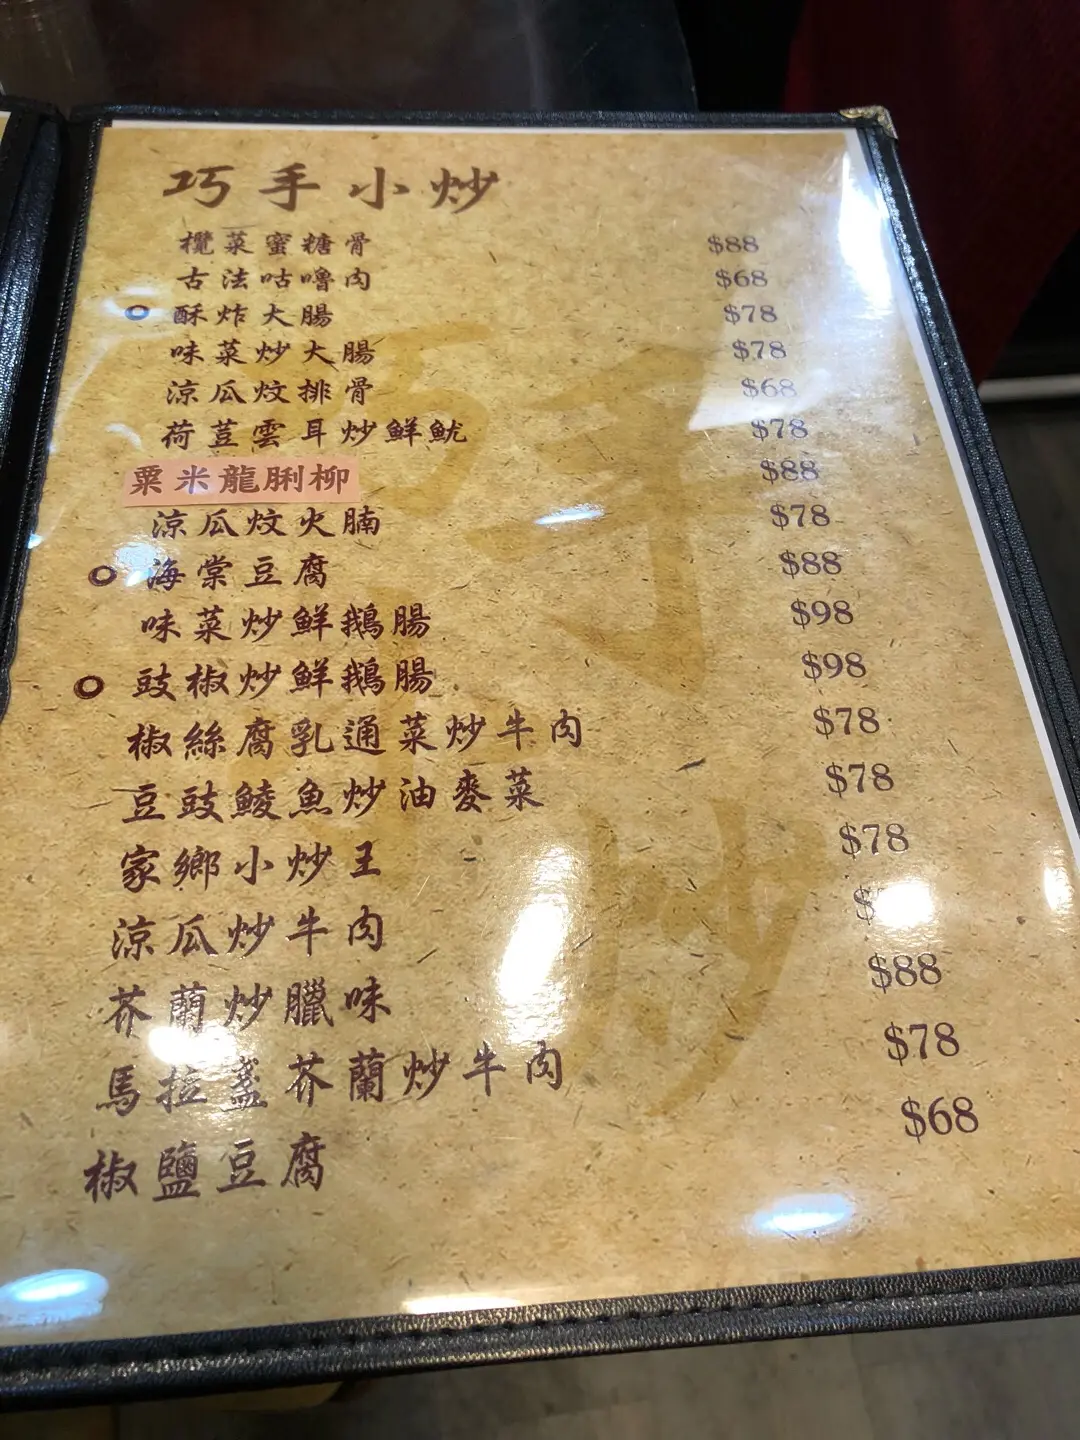 巧手小炒
欖菜蜜糖骨 $88
古法咕嚕肉 $68
酥炸大腸 $78
味菜炒大腸 $78
涼瓜炆排骨 $68
荷荳雲耳炒鮮魷 $78
粟米龍脷柳 $88
涼瓜炆火腩 $78
海棠豆腐 $88
味菜炒鮮鵝腸 $98
豉椒炒鮮鵝腸 $98
椒絲腐乳通菜炒牛肉 $78
豆豉鯪魚炒油麥菜 $78
家鄉小炒王 $78
涼瓜炒牛肉
芥蘭炒臘味 $88
馬拉盞芥蘭炒牛肉 $78
椒鹽豆腐 $68